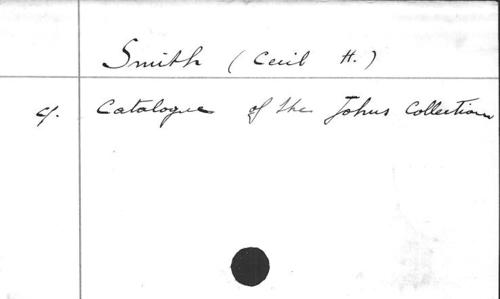 Smith (Cecil H.)
cf. Catalogue of the Johns Collection